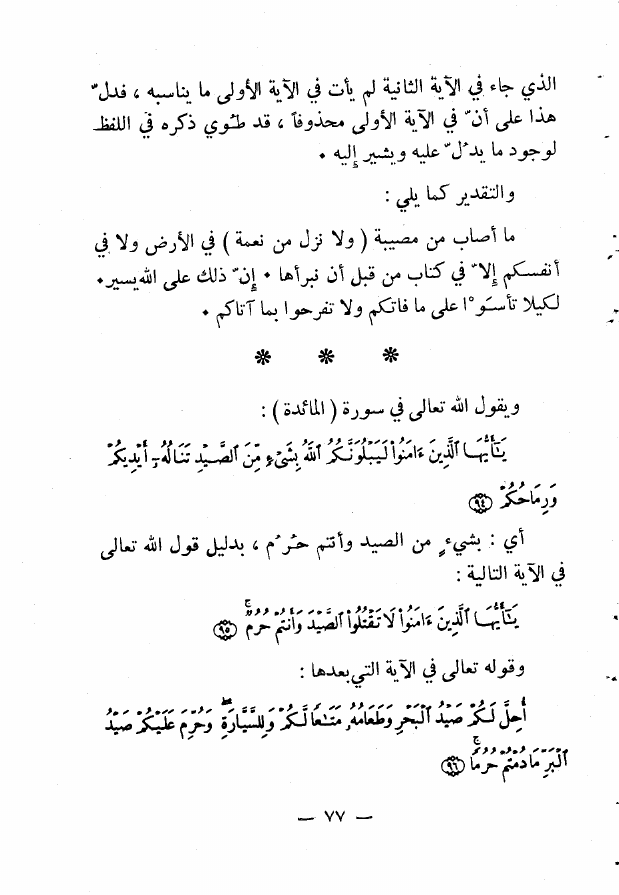 الذي جاء في الآية الثانية لم يأت في الآية الأولى ما يناسبه ، فدلّ
هذا على أنّ في الآية الأولى محذوفاً ، قد طُوي ذكره في اللفظ
لوجود ما يدُلّ عليه ويشير إليه .
والتقدير كما يلي :
ما أصاب من مصيبة ( ولا نزل من نعمة ) في الأرض ولا في
أنفسكم إلاّ في كتاب من قبل أن نبرأها . إنّ ذلك على الله يسير .
لكيلا تأسَوْا على ما فاتكم ولا تفرحوا بما آتاكم .
* * *
ويقول الله تعالى في سورة ( المائدة ) :
يَـٰٓأَيُّهَا ٱلَّذِينَ ءَامَنُوا۟ لَيَبْلُوَنَّكُمُ ٱللَّهُ بِشَىْءٍ مِّنَ ٱلصَّيْدِ تَنَالُهُۥٓ أَيْدِيكُمْ
وَرِمَاحُكُمْ ٩٤
أي : بشيءٍ من الصيد وأنتم حُرُم ، بدليل قول الله تعالى
في الآية التالية :
يَـٰٓأَيُّهَا ٱلَّذِينَ ءَامَنُوا۟ لَا تَقْتُلُوا۟ ٱلصَّيْدَ وَأَنتُمْ حُرُمٌ ۚ ٩٥
وقوله تعالى في الآية التي بعدها :
أُحِلَّ لَكُمْ صَيْدُ ٱلْبَحْرِ وَطَعَامُهُۥ مَتَـٰعًا لَّكُمْ وَلِلسَّيَّارَةِ ۖ وَحُرِّمَ عَلَيْكُمْ صَيْدُ
ٱلْبَرِّ مَا دُمْتُمْ حُرُمًا ۗ ٩٦
— ٧٧ —